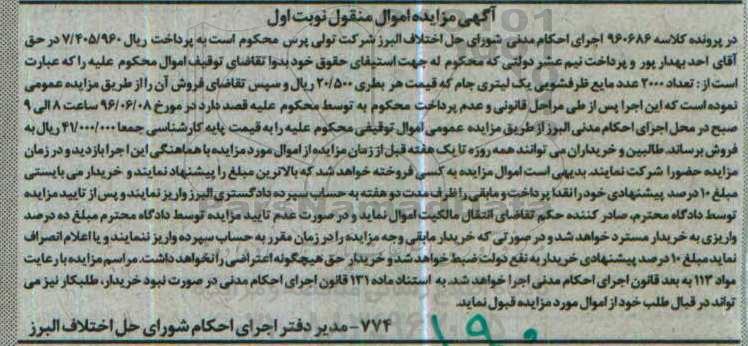 آگهی مزایده اموال منقول نوبت اول
در پرونده کلاسه ۹۶۰۶۸۶ اجرای احکام مدنی شورای حل اختلاف البرز شرکت تولی پرس محکوم است به پرداخت ریال ۷/۴۰۵/۹۶۰ در حق
آقای احد بهدار پور و پرداخت نیم عشر دولتی که محکوم له جهت استیفای حقوق خود بدوا تقاضای توقیف اموال محکوم علیه را که عبارت
است از: تعداد ۲۰۰۰ عدد مایع ظرفشویی یک لیتری جام که قیمت هر بطری ۲۰/۵۰۰ ریال و سپس تقاضای فروش آن را از طریق مزایده عمومی
نموده است که این اجرا پس از طی مراحل قانونی و عدم پرداخت محکوم به توسط محکوم علیه قصد دارد در مورخ ۹۶/۰۶/۰۸ ساعت ۸ الی ۹
صبح در محل اجرای احکام مدنی البرز از طریق مزایده عمومی اموال توقیفی محکوم علیه را به قیمت پایه کارشناسی جمعا ۴۱/۰۰۰/۰۰۰ ریال به
فروش برساند. طالبین و خریداران می توانند همه روزه تا یک هفته قبل از زمان مزایده از اموال مورد مزایده با هماهنگی این اجرا بازدید و در زمان
مزایده حضورا شرکت نمایند. بدیهی است اموال مزایده به کسی فروخته خواهد شد که بالاترین مبلغ را پیشنهاد نمایند و خریدار می بایستی
مبلغ ۱۰ درصد پیشنهادی خود را نقدا پرداخت و مابقی را ظرف مدت دو هفته به حساب سپرده دادگستری البرز واریز نمایند و پس از تایید مزایده
توسط دادگاه محترم، صادر کننده حکم تقاضای انتقال مالکیت اموال نماید و در صورت عدم تایید مزایده توسط دادگاه محترم مبلغ ده درصد
واریزی به خریدار مسترد خواهد شد و در صورتی که خریدار مابقی وجه مزایده را در زمان مقرر به حساب سپرده واریز ننمایند و یا اعلام انصراف
نماید مبلغ ۱۰ درصد پیشنهادی خریدار به نفع دولت ضبط خواهد شد و خریدار حق هیچگونه اعتراضی را نخواهد داشت. مراسم مزایده با رعایت
مواد ۱۱۳ به بعد قانون اجرای احکام مدنی اجرا خواهد شد. به استناد ماده ۱۳۱ قانون اجرای احکام مدنی در صورت نبود خریدار، طلبکار نیز می
تواند در قبال طلب خود از اموال مورد مزایده قبول نماید.
۷۷۴- مدیر دفتر اجرای احکام شورای حل اختلاف البرز
۱۹۰